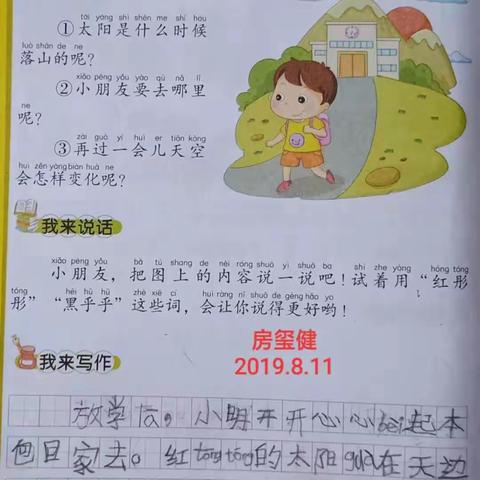 tài yáng shì shén me shí hou
①太阳是什么时候
luò shān de ne
落山的呢?
xiǎo péng yǒu yào qù nǎ lǐ
②小朋友要去哪里
ne
呢?
zài guò yí huì er tiān kōng
③再过一会儿天空
huì zěn yàng biàn huà ne
会怎样变化呢?
我来说话
xiǎo péng yǒu bǎ tú shang de nèi róng shuō yi shuō ba shì zhe yòng hóng tóng
小朋友,把图上的内容说一说吧!试着用“红彤
tóng hēi hū hū zhè xiē cí huì ràng nǐ shuō de gèng hǎo yo
彤”“黑乎乎”这些词,会让你说得更好哟!
房玺健
2019.8.11
我来写作
放学后,小明开开心心bēi起本
包回家去。红tōngtōng的太阳guà在天边